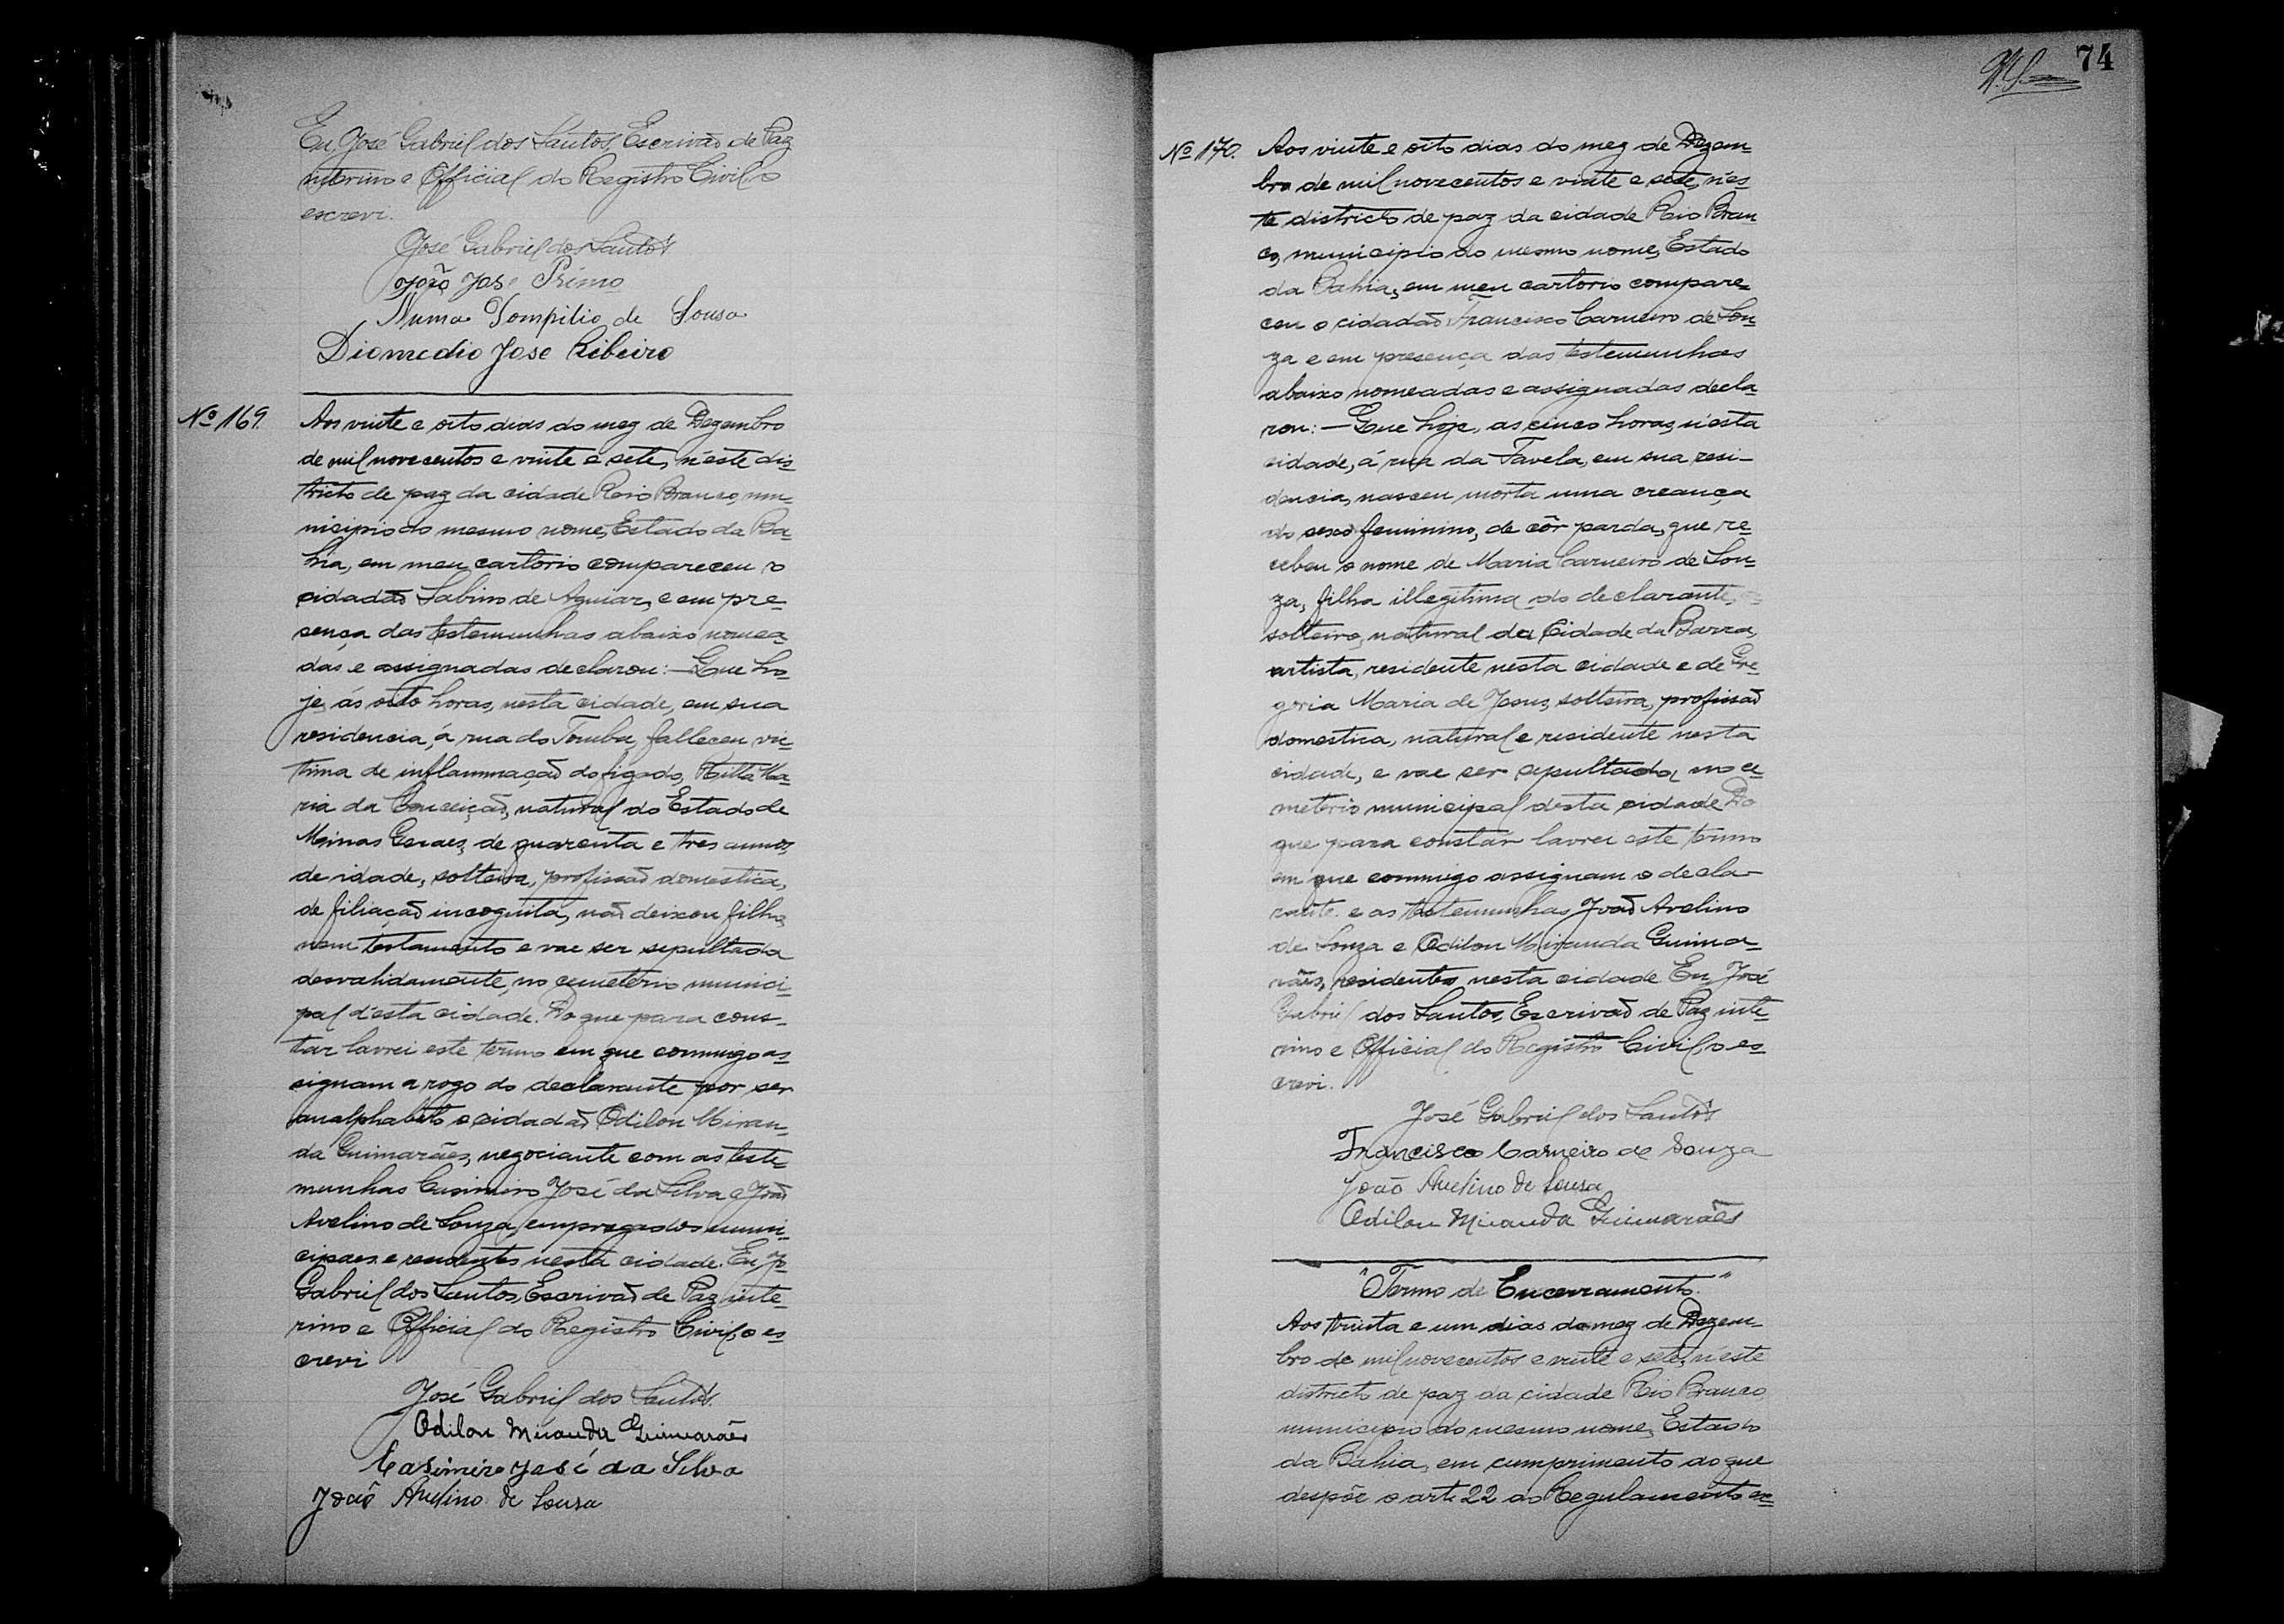 Eu, José Gabriel dos Santos, Escrivão de Paz
interino e Official do Registro Civil o
escrevi.
José Gabriel dos Santos
João Jose Primo
Numa Pompilio de Sousa
Diomedio Jose Ribeiro
Nº 169. Aos vinte e oito dias do mez de Dezembro
de mil novecentos e vinte e sete, n'este dis-
tricto de paz da cidade Rio Branco, mu-
nicipio do mesmo nome, Estado da Ba-
hia, em meu cartorio compareceu o
cidadão Sabino de Aguiar, e em pre-
sença das testemunhas abaixo nomea-
das e assignadas declarou: — Que ho-
je, ás oito horas, nesta cidade, em sua
residencia, á rua do Tomba, falleceu vic-
tima de inflammação do figado, Ritta Ma-
ria da Conceição, natural do Estado de
Minas Geraes, de quarenta e tres annos,
de idade, solteira, profissão domestica,
de filiação incognita, não deixou filhos,
nem testamento e vae ser sepultada
desvalidamente, no cemeterio munici-
pal d'esta cidade. Do que para cons-
tar lavrei este termo em que commigo as-
signam a rogo do declarante por ser
analphabeto o cidadão Odilon Miran-
da Guimarães, negociante com as teste-
munhas Casimiro José da Silva e João
Avelino de Souza, empregados muni-
cipaes e residentes nesta cidade. Eu, Jº
Gabriel dos Santos, Escrivão de Paz inte-
rino e Official do Registro Civil, o es-
crevi
José Gabriel dos Santos.
Odilon Miranda Guimarães
Casimiro José da Silva
João Avelino de Sousa
74
Nº 170. Aos vinte e oito dias do mez de Dezem-
bro de mil novecentos e vinte e sete, n'es-
te districto de paz da cidade Rio Bran-
co, municipio do mesmo nome, Estado
da Bahia, em meu cartorio compare-
ceu o cidadão Francisco Carneiro de Sou-
za e em presença das testemunhas
abaixo nomeadas e assignadas decla-
rou: — Que hoje, as cinco horas, n'esta
cidade, á rua da Favela, em sua resi-
dencia, nasceu morta uma creança
do sexo feminino, de côr parda, que re-
cebeu o nome de Maria Carneiro de Sou-
za, filha illegitima do declarante,
solteiro, natural da Cidade da Barra,
artista, residente nesta cidade e de Gre-
goria Maria de Jesus, solteira, profissão
domestica, natural e residente nesta
cidade, e vae ser sepultada, no ce-
meterio municipal desta cidade Do
que para constar lavrei este termo
em que commigo assignam o decla-
rante e as testemunhas João Avelino
de Souza e Odilon Miranda Guima-
rães, residentes nesta cidade Eu, José
Gabriel dos Santos, Escrivão de Paz inte-
rino e Official do Registro Civil, o es-
crevi.
José Gabriel dos Santos
Francisco Carneiro de Souza
João Avelino de Sousa
Odilon Miranda Guimarães
"Termo de Encerramento."
Aos trinta e um dias do mez de Dezem-
bro de mil novecentos e vinte e sete, n'este
districto de paz da cidade Rio Branco,
municipio do mesmo nome, Estado
da Bahia, em cumprimento ao que
despõe o arte 22 do Regulamento an-